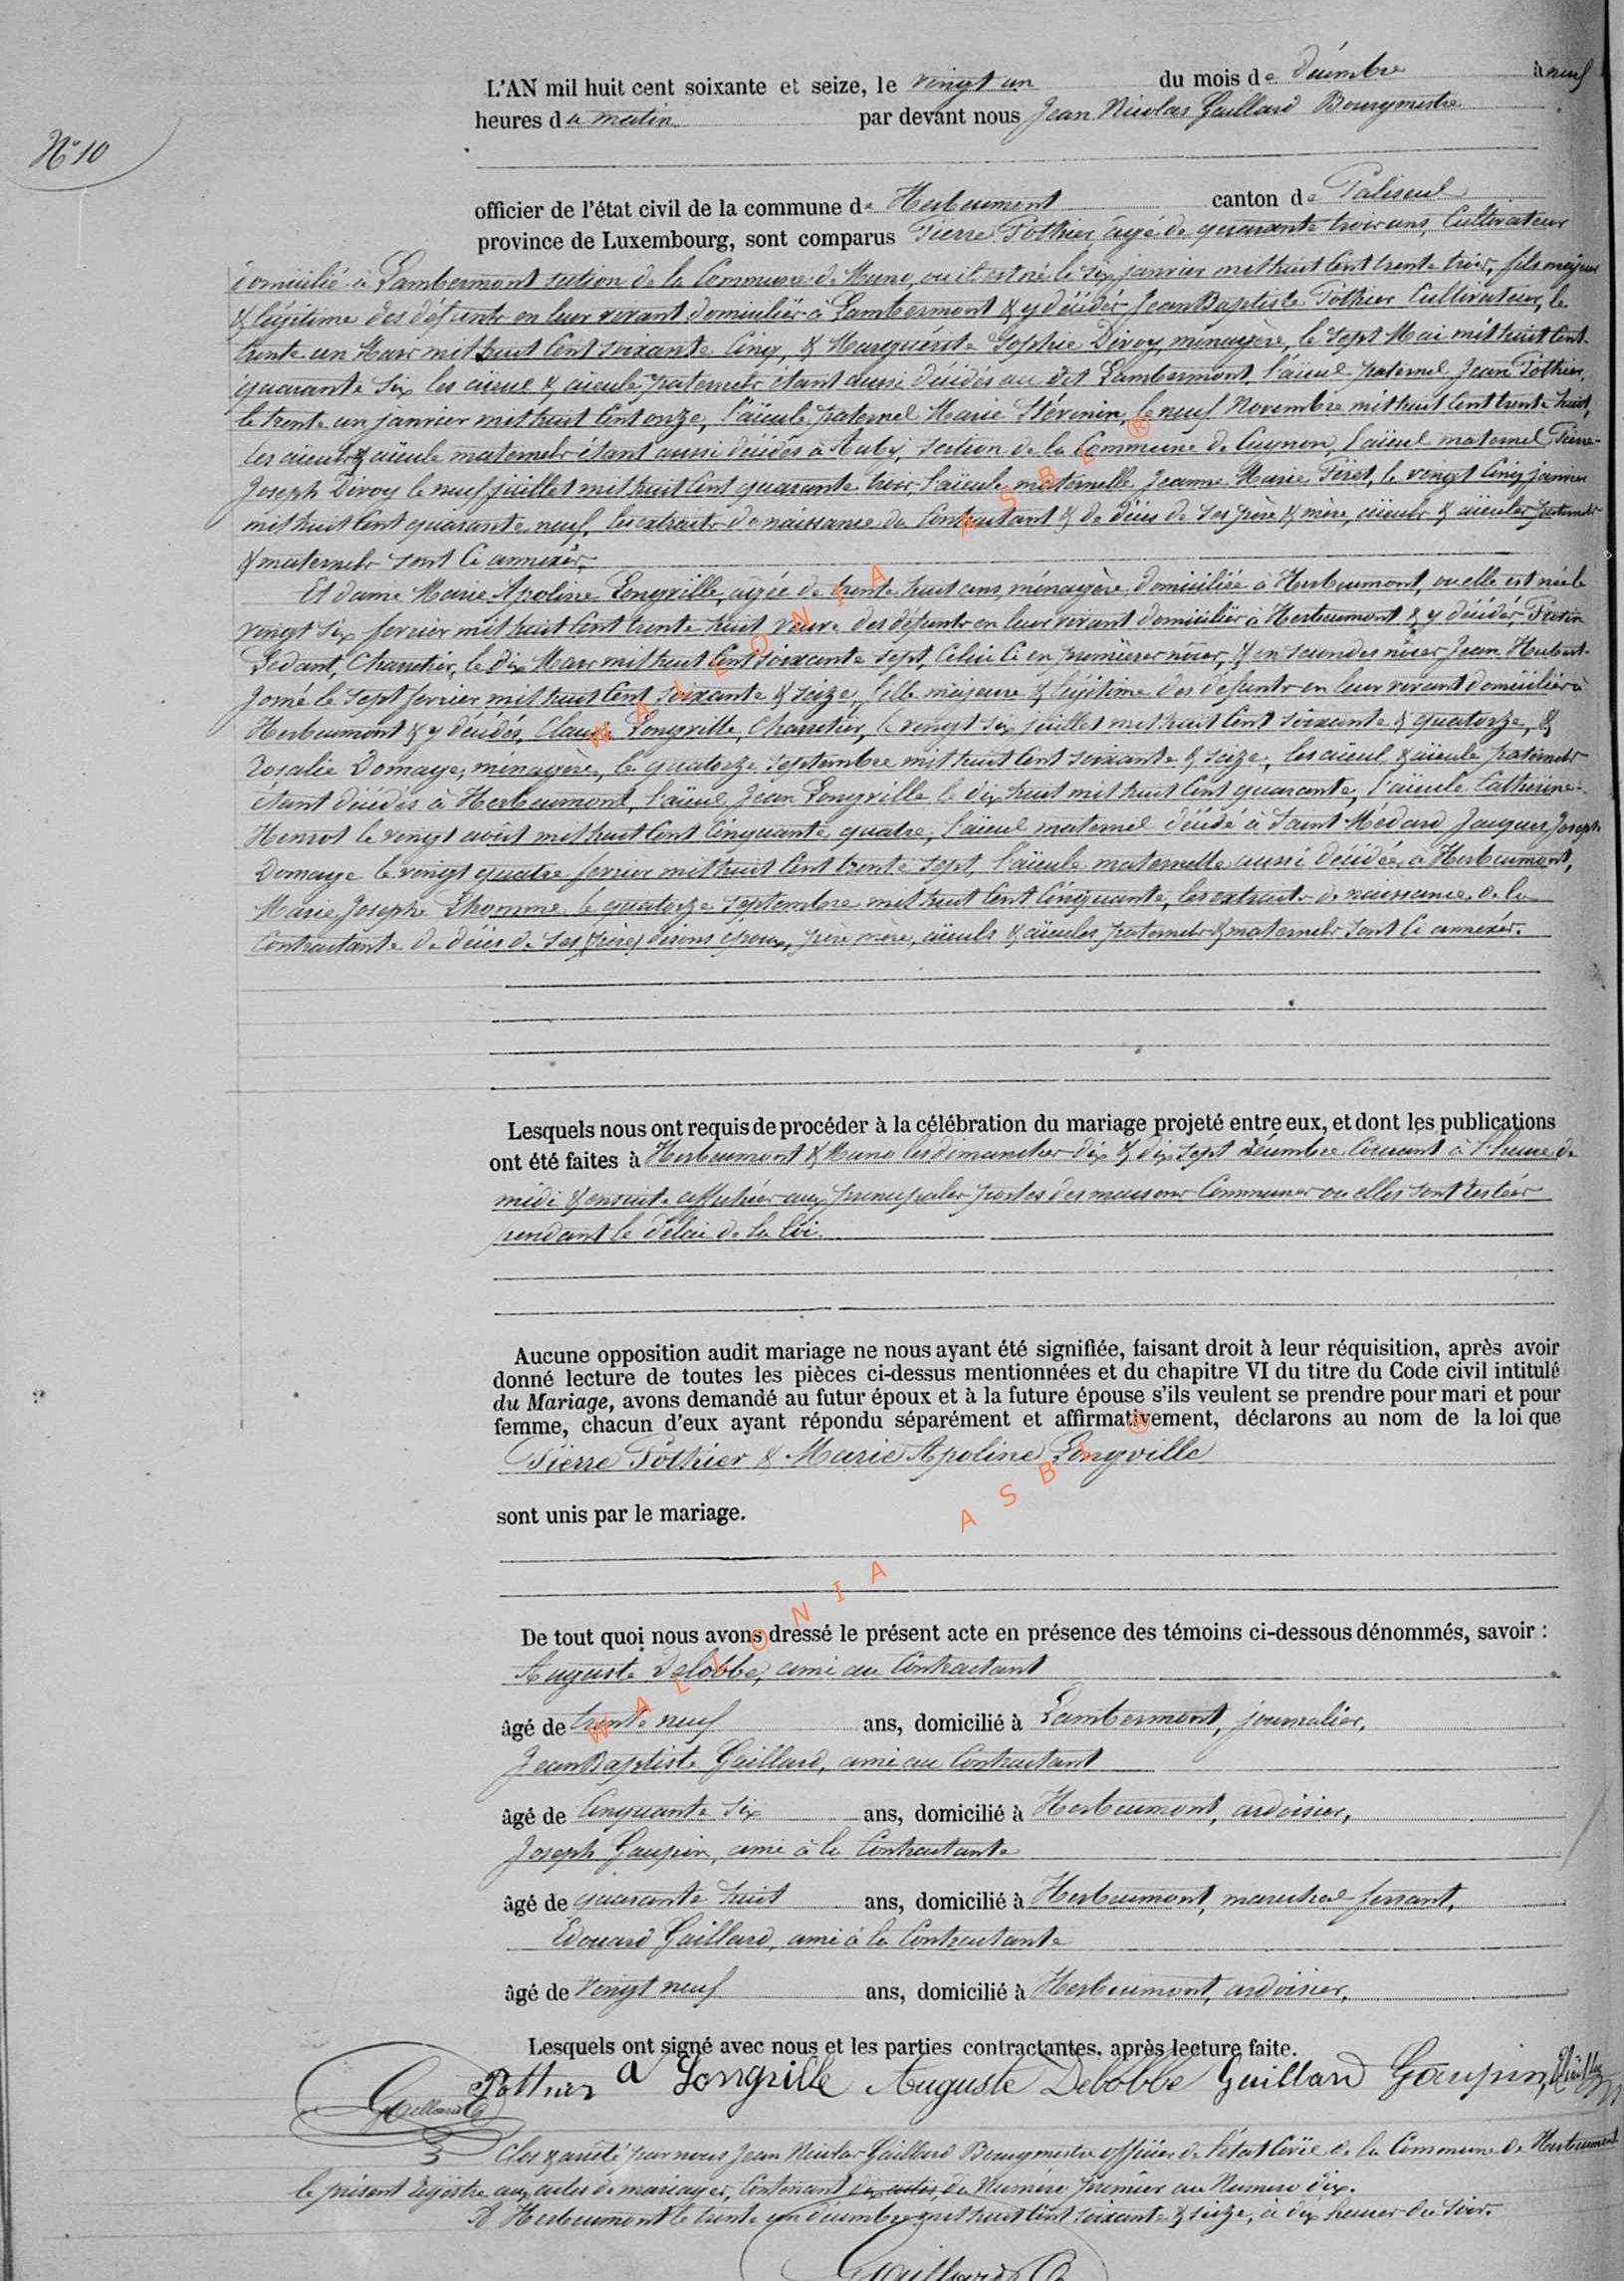 N° 10
L'AN mil huit cent soixante et seize, le vingt un du mois de Décembre à neuf
heures du matin par devant nous Jean Nicolas Gaillard Bourgmestre
officier de l'état civil de la commune de Herbeumont canton de Paliseul
province de Luxembourg, sont comparus Pierre Pothier âgé de quarante trois ans, Cultivateur
domicilié à Lambermont section de la Commune de Muno, ou il est né le six janvier mil huit Cent trente trois, fils majeur
& légitime des défunts en leur vivant domiciliés à Lambermont & y décédés Jean Baptiste Pothier Cultivateur, le
trente un Mars mil huit Cent soixante Cinq, & Marguérite Sophie Divoy, ménagère, le sept Mai mil huit Cent
quarante six les aïeul & aïeule paternels étant aussi décédés au dit Lambermont, l'aïeul paternel Jean Pothier,
le trente un janvier mil huit Cent onze, l'aïeule paternel Marie Stévenin, le neuf Novembre mil huit Cent trente huit,
les aïeul & aïeule maternels étant aussi décédés à Auby, section de la Commune de Cugnon, l'aïeul maternel Pierre
Joseph Divoy le neuf juillet mil huit Cent quarante trois, l'aïeule maternelle Jeanne Marie Piret, le vingt Cinq janvier
mil huit Cent quarante neuf, les extraits de naissance du Contractant & de décès de ses père & mère, aïeuls & aïeules paternels
& maternels sont Ci annexés.
Et dame Marie Apoline Longville, agée de trente huit ans, ménagère, domiciliée à Herbeumont, ou elle est née le
vingt six fevrier mil huit Cent trente huit veuve des défunts en leur vivant domiciliés à Herbeumont & y décédés,
Ledant, Charretier, le dix Mars mil huit Cent soixante sept, Celui Ci en premières nôces, & en secondes nôces Jean Hubert
Jomé le sept fevrier mil huit Cent soixante & seize, fille majeure & légitime des défunts en leur vivant domiciliés à
Herbeumont & y décédés, Claude Longville, Charretier, le vingt six juillet mil huit Cent soixante & quatorze, &
Rosalie Domaye, ménagère, le quatorze septembre mil huit Cent soixante & seize, les aïeul & aïeule paternels
étant décédés à Herbeumont, l'aïeul Jean Longville le dix huit mil huit Cent quarante, l'aïeule Catherine
Henrot le vingt août mil huit Cent Cinquante quatre, l'aïeul maternel décédé à Saint Médard Jacques Joseph
Domaye le vingt quatre fevrier mil huit Cent trente sept, l'aïeule maternelle aussi décédée à Herbeumont,
Marie Josephe Lhomme le quatorze septembre mil huit Cent Cinquante, les extraits de naissance de la
Contractante de décès de ses (père) disons époux, père mère, aïeuls & aïeules paternels & maternels sont Ci annexés.
Lesquels nous ont requis de procéder à la célébration du mariage projeté entre eux, et dont les publications
ont été faites à Herbeumont & Muno les dimanches dix & dix sept décembre Courant à l'heure de
midi & ensuite affichées aux principales portes des maisons Communes ou elles sont restées
pendant le délai de la loi.
Aucune opposition audit mariage ne nous ayant été signifiée, faisant droit à leur réquisition, après avoir
donné lecture de toutes les pièces ci-dessus mentionnées et du chapitre VI du titre du Code civil intitulé
du Mariage, avons demandé au futur époux et à la future épouse s'ils veulent se prendre pour mari et pour
femme, chacun d'eux ayant répondu séparément et affirmativement, déclarons au nom de la loi que
Pierre Pothier & Marie Apoline Longville
sont unis par le mariage.
De tout quoi nous avons dressé le présent acte en présence des témoins ci-dessous dénommés, savoir :
Auguste Delobbe, ami au Contractant
âgé de trente neuf ans, domicilié à Lambermont, journalier,
Jean Baptiste Gaillard, ami au Contractant
âgé de Cinquante six ans, domicilié à Herbeumont, ardoisier,
Joseph Gaupin, ami à la Contractante
âgé de quarante huit ans, domicilié à Herbeumont, marechal ferrant,
Edouard Gaillard, ami à la Contractante
âgé de vingt neuf ans, domicilié à Herbeumont, ardoisier,
Lesquels ont signé avec nous et les parties contractantes, après lecture faite.
Gaillard Pothier a Longville Auguste Delobbe Gaillard Gaupin
Clos & arrêté par nous Jean Nicolas Gaillard Bourgmestre officier de l'état Civil de la Commune de Herbeumont
le présent régistre aux actes de mariages, Contenant dix actes, du Numéro premier au Numéro dix.
A Herbeumont le trente un décembre mil huit Cent soixante & seize, à dix heures du soir.
Gaillard
WALLONIA ASBL ®
WALLONIA ASBL ®